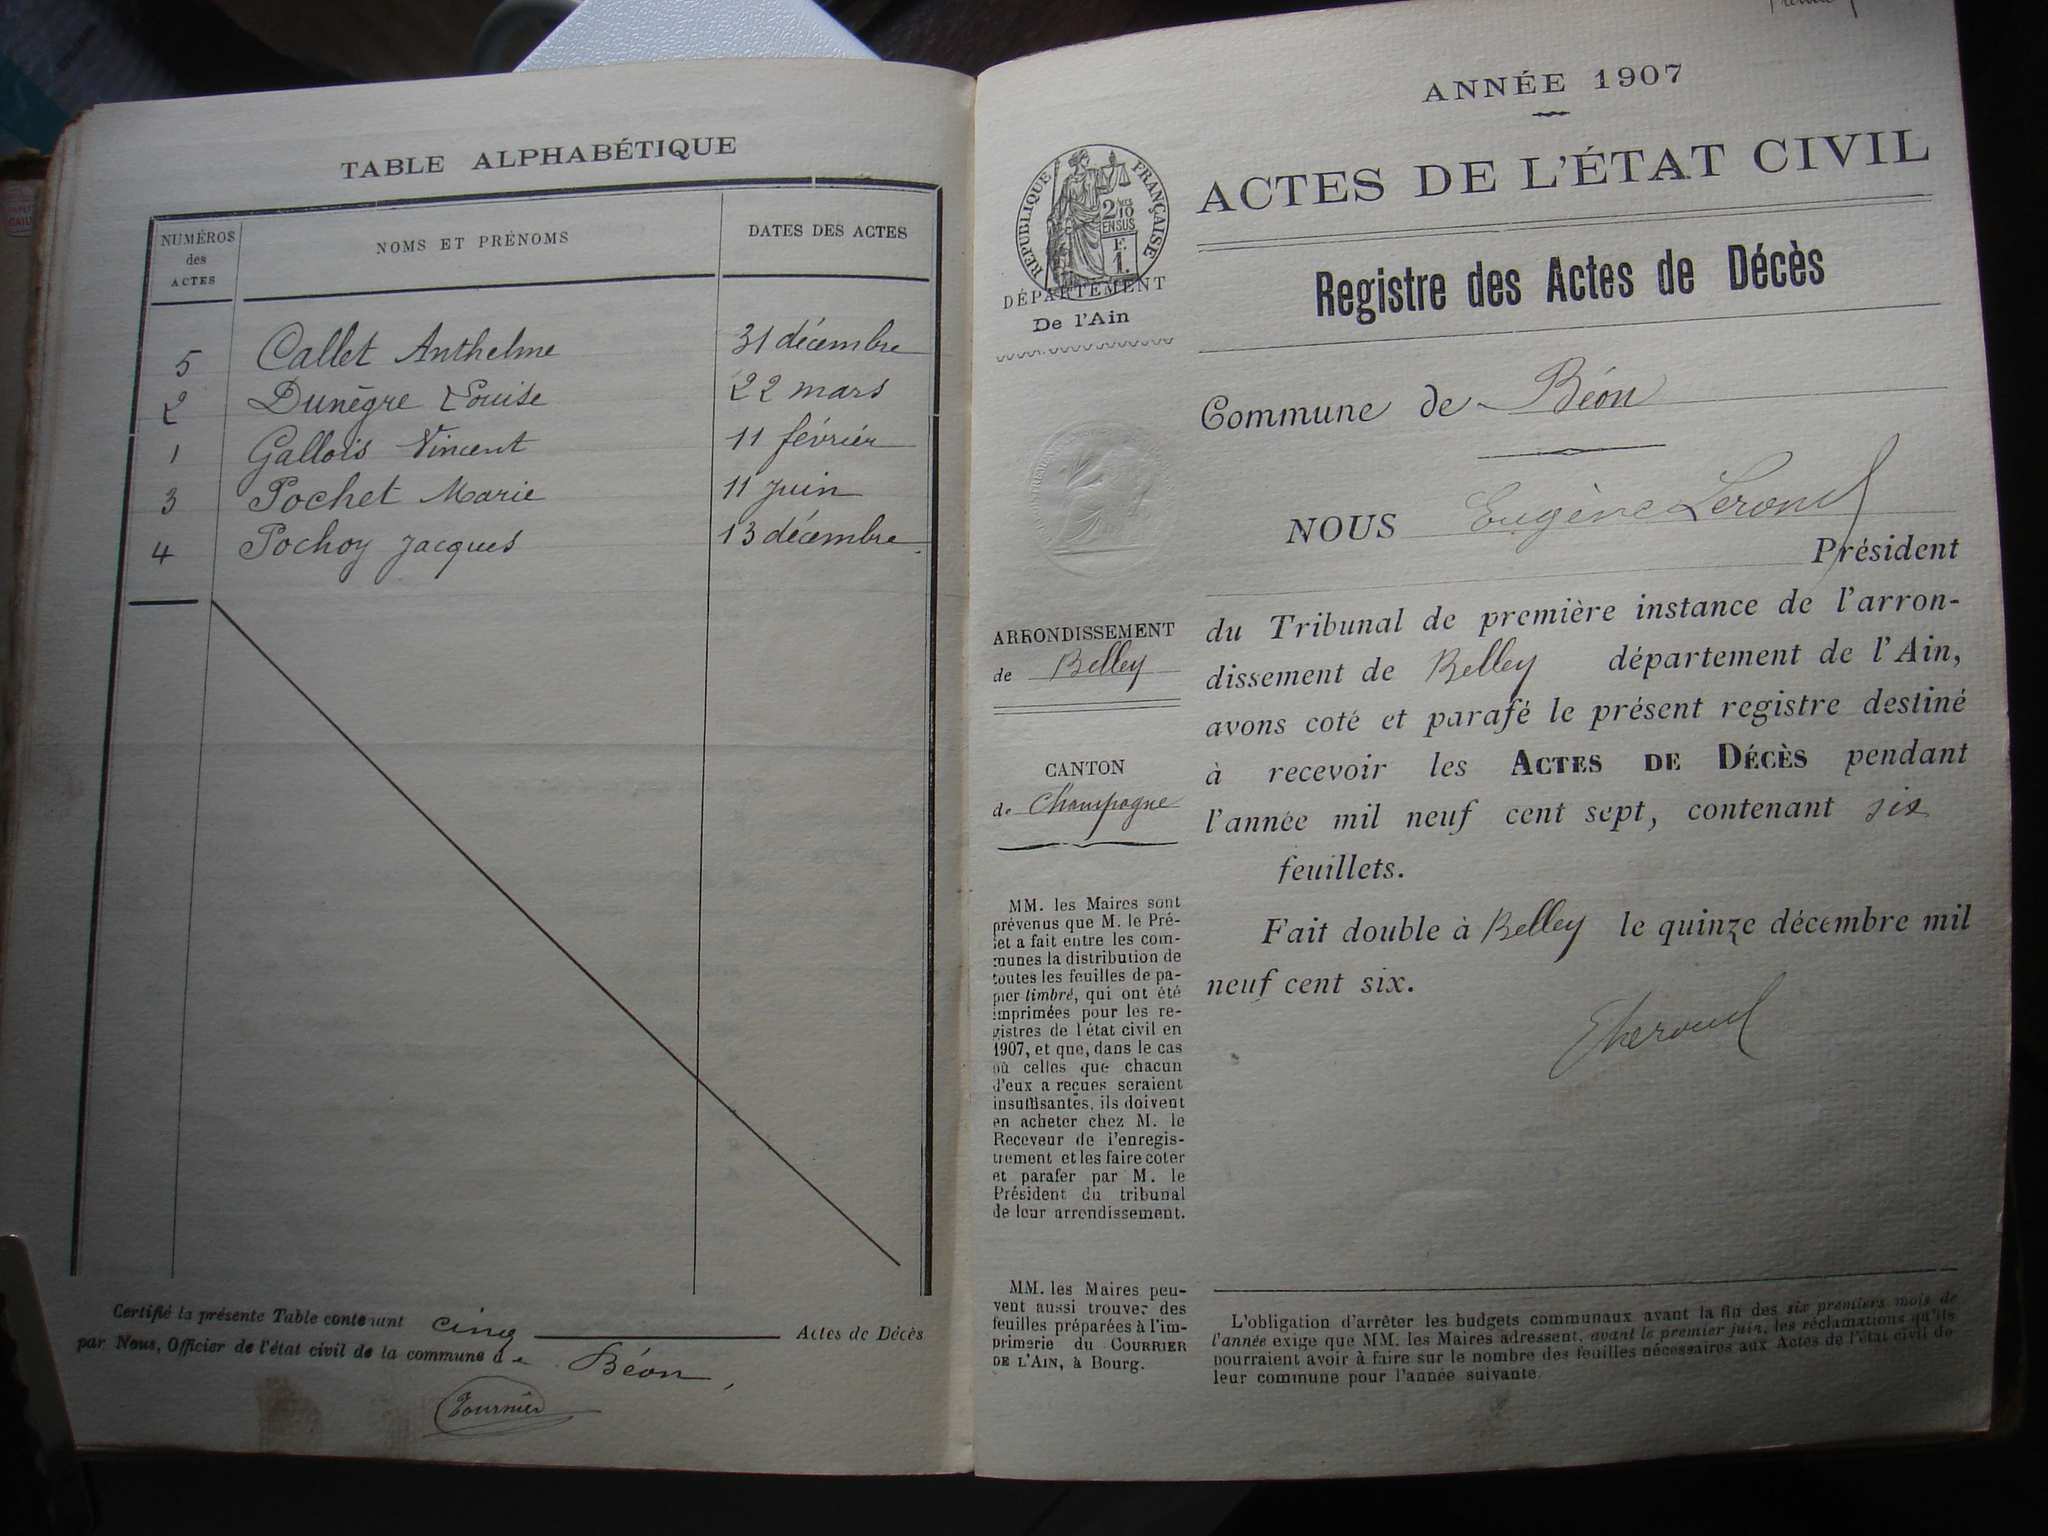 TABLE ALPHABÉTIQUE
NUMÉROS
des
ACTES
NOMS ET PRÉNOMS
DATES DES ACTES
5 Callet Anthelme 31 décembre
2 Dunègre Louise 22 mars
1 Gallois Vincent 11 février
3 Pochet Marie 11 juin
4 Pochoy Jacques 13 décembre
Certifié la présente Table contenant cinq Actes de Décès
par Nous, Officier de l'état civil de la commune de Béon,
Tournier
ANNÉE 1907
ACTES DE L'ÉTAT CIVIL
RÉPUBLIQUE FRANÇAISE
2/10
EN SUS
F.
1.
DÉPARTEMENT
De l'Ain
Registre des Actes de Décès
Commune de Béon
NOUS Eugène
Président
du Tribunal de première instance de l'arron-
dissement de Belley département de l'Ain,
avons coté et parafé le présent registre destiné
à recevoir les ACTES DE DÉCÈS pendant
l'année mil neuf cent sept, contenant six
feuillets.
Fait double à Belley le quinze décembre mil
neuf cent six.
ARRONDISSEMENT
de Belley
CANTON
de Champagne
MM. les Maires sont
prévenus que M. le Pré-
fet a fait entre les com-
munes la distribution de
toutes les feuilles de pa-
pier timbré, qui ont été
imprimées pour les re-
gistres de l'état civil en
1907, et que, dans le cas
où celles que chacun
d'eux a reçues seraient
insuffisantes, ils doivent
en acheter chez M. le
Receveur de l'enregis-
trement et les faire coter
et parafer par M. le
Président du tribunal
de leur arrondissement.
MM. les Maires peu-
vent aussi trouver des
feuilles préparées à l'im-
primerie du COURRIER
DE L'AIN, à Bourg.
L'obligation d'arrêter les budgets communaux avant la fin des six premiers mois de
l'année exige que MM. les Maires adressent, avant le premier juin, les réclamations qu'ils
pourraient avoir à faire sur le nombre des feuilles nécessaires aux Actes de l'état civil de
leur commune pour l'année suivante.